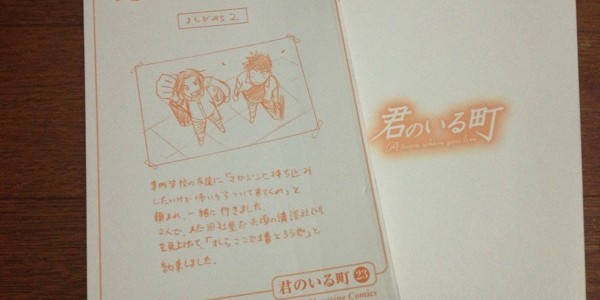 専門学校の友達に「マガジンに持ち込み
したいけど怖いからついて来てくれ」と
頼まれ、一緒に行きました。
2人で、の講談社ビル
を見上げて「オレらここで1番とろうぜ」と
約束しました。
君のいる町 23
Comics
君のいる町
A town where you live